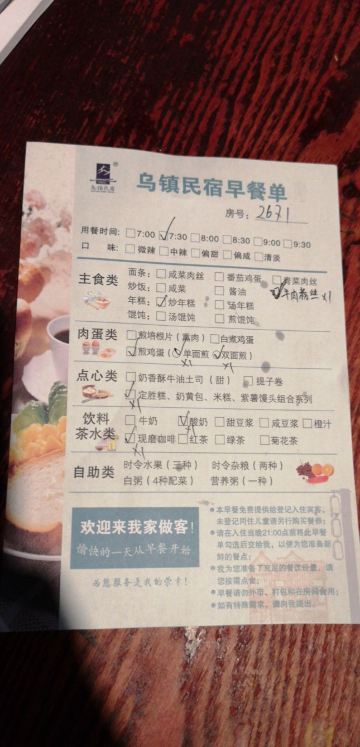 乌镇民宿
乌镇民宿早餐单
房号：2671
用餐时间：□7:00 ☑7:30 □8:00 □8:30 □9:00 □9:30
口 味：□微辣 □中辣 □偏甜 □偏咸 □清淡
主食类
面条：□咸菜肉丝 □番茄鸡蛋 □青菜肉丝
炒饭：□咸菜 □酱油 ☑牛肉粉丝 x1
年糕：☑炒年糕 □汤年糕
馄饨：□汤馄饨 □煎馄饨
肉蛋类
□煎培根片（熏肉） □白煮鸡蛋
☑煎鸡蛋（☑单面煎 ☑双面煎）
x1 x1
点心类
□奶香酥牛油土司（甜） □提子卷
☑定胜糕、奶黄包、米糕、紫薯馒头组合系列
x1
饮料
茶水类
□牛奶 ☑酸奶 □甜豆浆 □咸豆浆 □橙汁
x1
☑现磨咖啡 □红茶 □绿茶 □菊花茶
x1
自助类
时令水果（三种） 时令杂粮（两种）
白粥（4种配菜） 营养粥（一种）
欢迎来我家做客！
愉快的一天从早餐开始
为您服务是我的荣幸！
●本早餐免费提供给登记入住宾客，
未登记同住儿童请另行购买餐券；
●请在入住当晚21:00点前将此早餐
单勾选后交给我，以便为您准备新
鲜的餐点；
●我为您准备了充足的餐饮份量，请
您按需点食；
●早餐请勿外带、打包和在房间食用；
●如有特殊需求，请向我提出。